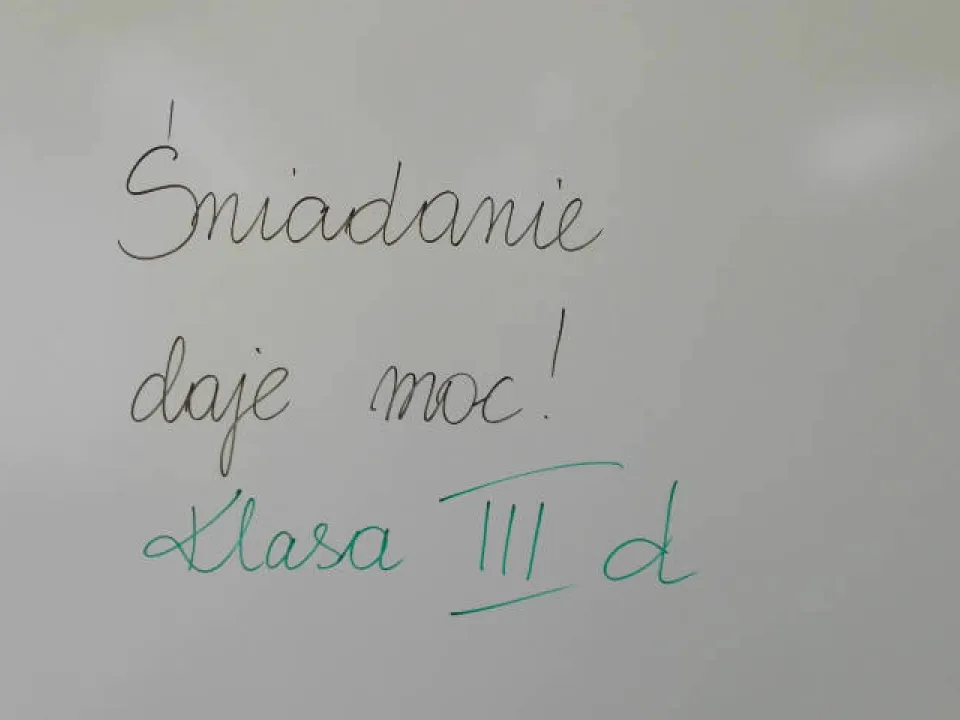 Śniadanie
daje moc!
Klasa III d